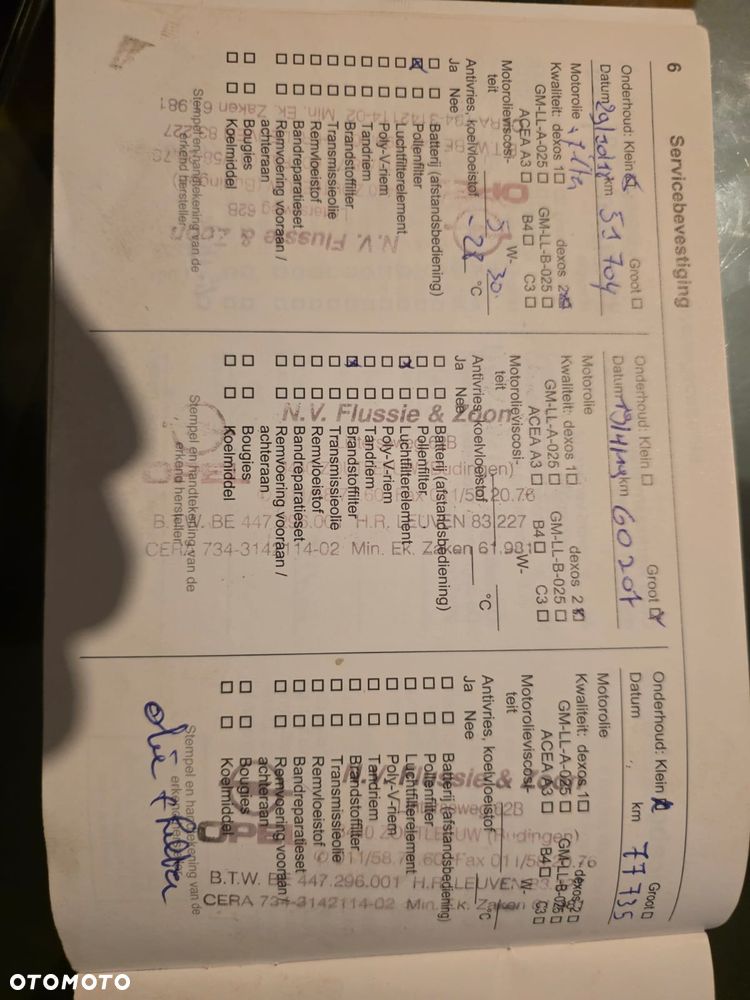 6
Servicebevestiging
Onderhoud: Klein ☒ Groot ☐
Datum km 51 704
Motorolie
Kwaliteit: dexos 1 ☐ dexos 2 ☒
GM-LL-A-025 ☐ GM-LL-B-025 ☐
ACEA A3 ☐ B4 ☐ C3 ☐
Motorolieviscosi-
teit 5 W- 30
Antivries, koelvloeistof - 28 °C
Ja Nee
☐ ☐ Batterij (afstandsbediening)
☒ ☐ Pollenfilter
☐ ☐ Luchtfilterelement
☐ ☐ Poly-V-riem
☐ ☐ Tandriem
☐ ☐ Brandstoffilter
☐ ☐ Transmissieolie
☐ ☐ Remvloeistof
☐ ☐ Bandreparatieset
☐ ☐ Remvoering vooraan /
achteraan
☐ ☐ Bougies
☐ ☐ Koelmiddel
Stempel en handtekening van de
erkend hersteller
N.V. Flussie &
OPEL
Onderhoud: Klein ☐ Groot ☒
Datum 19/4/19 km 60201
Motorolie
Kwaliteit: dexos 1 ☐ dexos 2 ☒
GM-LL-A-025 ☐ GM-LL-B-025 ☐
ACEA A3 ☐ B4 ☐ C3 ☐
Motorolieviscosi-
teit W-
Antivries, koelvloeistof °C
Ja Nee
☐ ☐ Batterij (afstandsbediening)
☐ ☐ Pollenfilter
☒ ☐ Luchtfilterelement
☐ ☐ Poly-V-riem
☐ ☐ Tandriem
☒ ☐ Brandstoffilter
☐ ☐ Transmissieolie
☐ ☐ Remvloeistof
☐ ☐ Bandreparatieset
☐ ☐ Remvoering vooraan /
achteraan
☐ ☐ Bougies
☐ ☐ Koelmiddel
Stempel en handtekening van de
erkend hersteller
N.V. Flussie & Zoon
B.T.W. BE 447.296.001 H.R. LEUVEN 83.227
CERA 734-3142114-02 Min. Ek. Zaken 61.981
Onderhoud: Klein ☒ Groot ☐
Datum km 77735
Motorolie
Kwaliteit: dexos 1 ☐ dexos 2 ☐
GM-LL-A-025 ☐ GM-LL-B-025 ☐
ACEA A3 ☐ B4 ☐ C3 ☐
Motorolieviscosi-
teit W-
Antivries, koelvloeistof °C
Ja Nee
☐ ☐ Batterij (afstandsbediening)
☐ ☐ Pollenfilter
☐ ☐ Luchtfilterelement
☐ ☐ Poly-V-riem
☐ ☐ Tandriem
☐ ☐ Brandstoffilter
☐ ☐ Transmissieolie
☐ ☐ Remvloeistof
☐ ☐ Bandreparatieset
☐ ☐ Remvoering vooraan /
achteraan
☐ ☐ Bougies
☐ ☐ Koelmiddel
Stempel en handtekening van de
N.V. Flussie &
OPEL
B.T.W. BE 447.296.001 H.R. LEUVEN
CERA 734-3142114-02 Min. Ek. Zaken
olie +
OTOMOTO